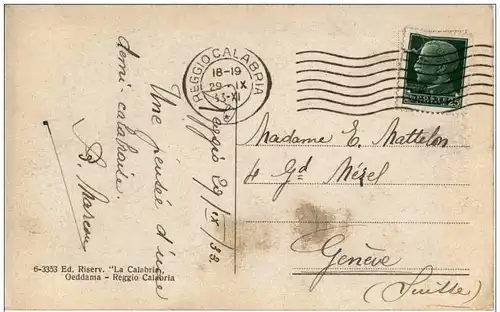 REGGIO CALABRIA
18-19
29 · IX
33-XI
Reggio 29/IX/33
Une pensée d'une
demi-calabraise.
Madame E. Mattelon
4 Gd Mézel
Genève
(Suisse)
6-3353 Ed. Riserv. "La Calabria"
Oeddama - Reggio Calabria